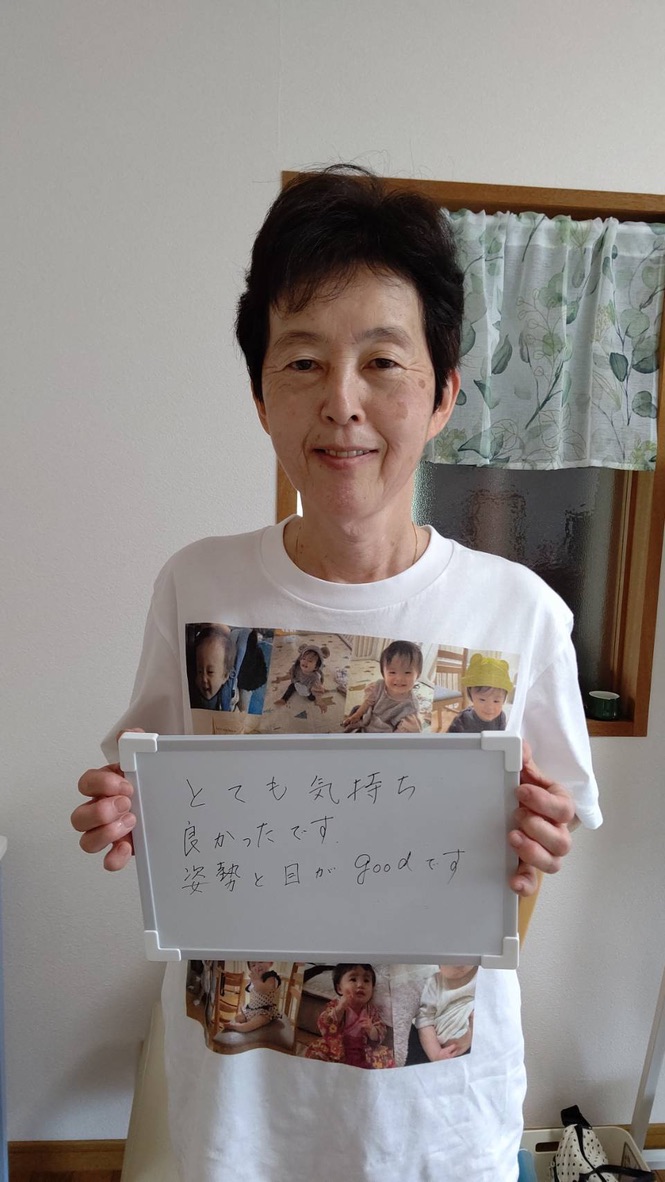 とても気持ち
良かったです.
姿勢と目がgoodです